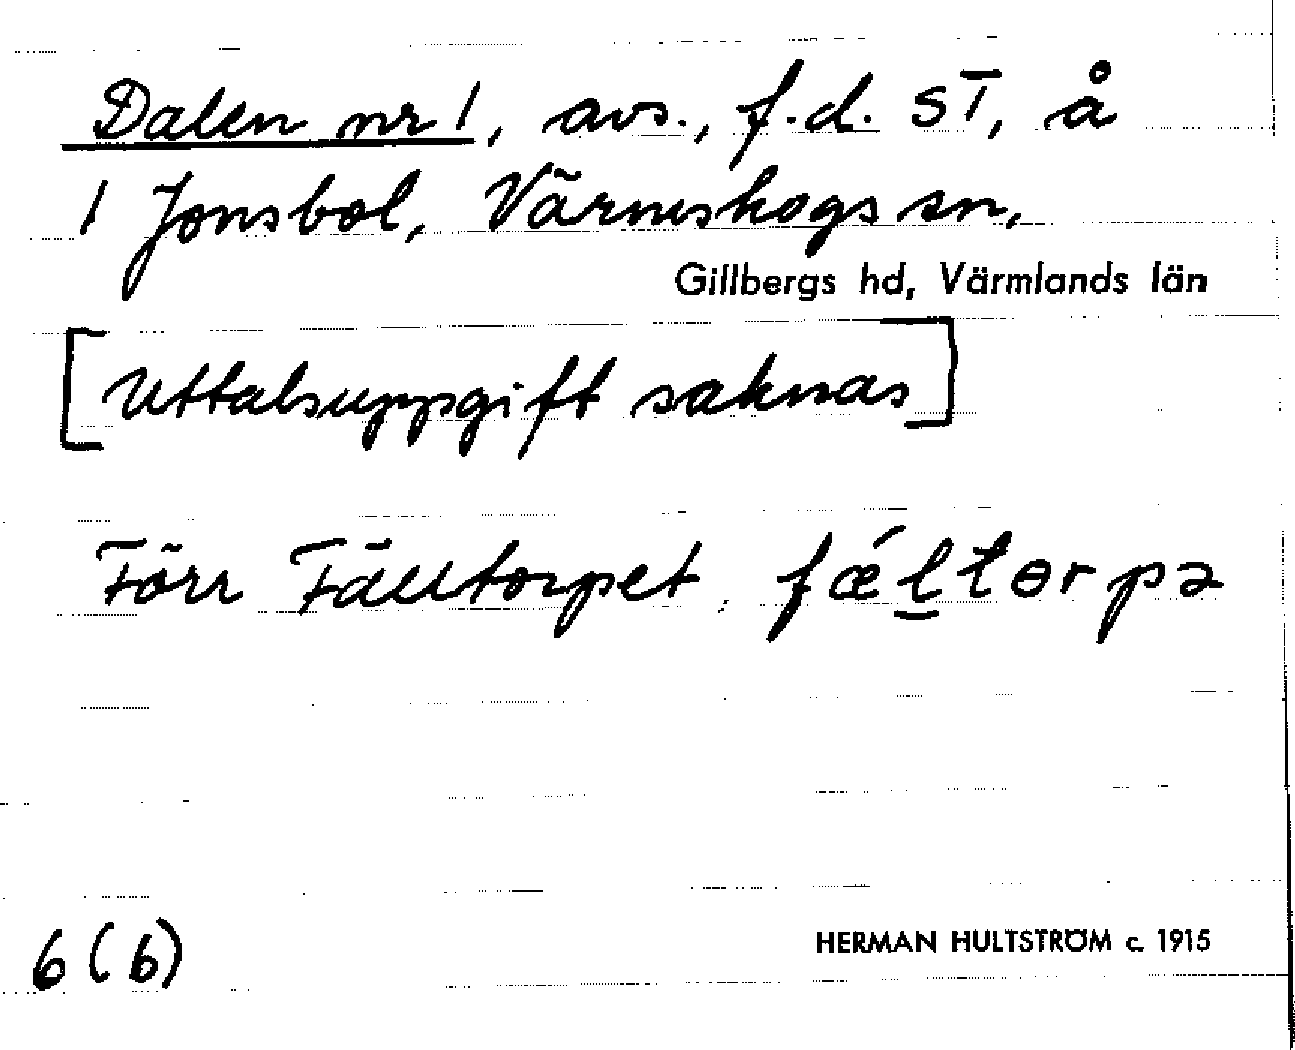 Dalen nr 1, avs., f.d. ST, å
1 Jonsbol, Värmskogs sn,
Gillbergs hd, Värmlands län
[Uttalsuppgift saknas]
Förr Fälltorpet, fæ´l̠tɵrpə
6(b)
HERMAN HULTSTRÖM c. 1915